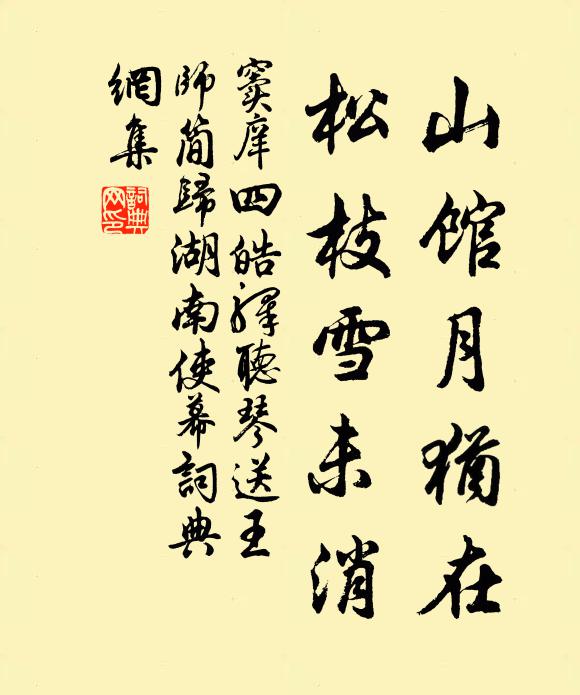 山馆月犹在
松枝雪未消
窦庠四皓驿聽琴送王
師简歸湖南使幕詞典
網集
詞典
网印